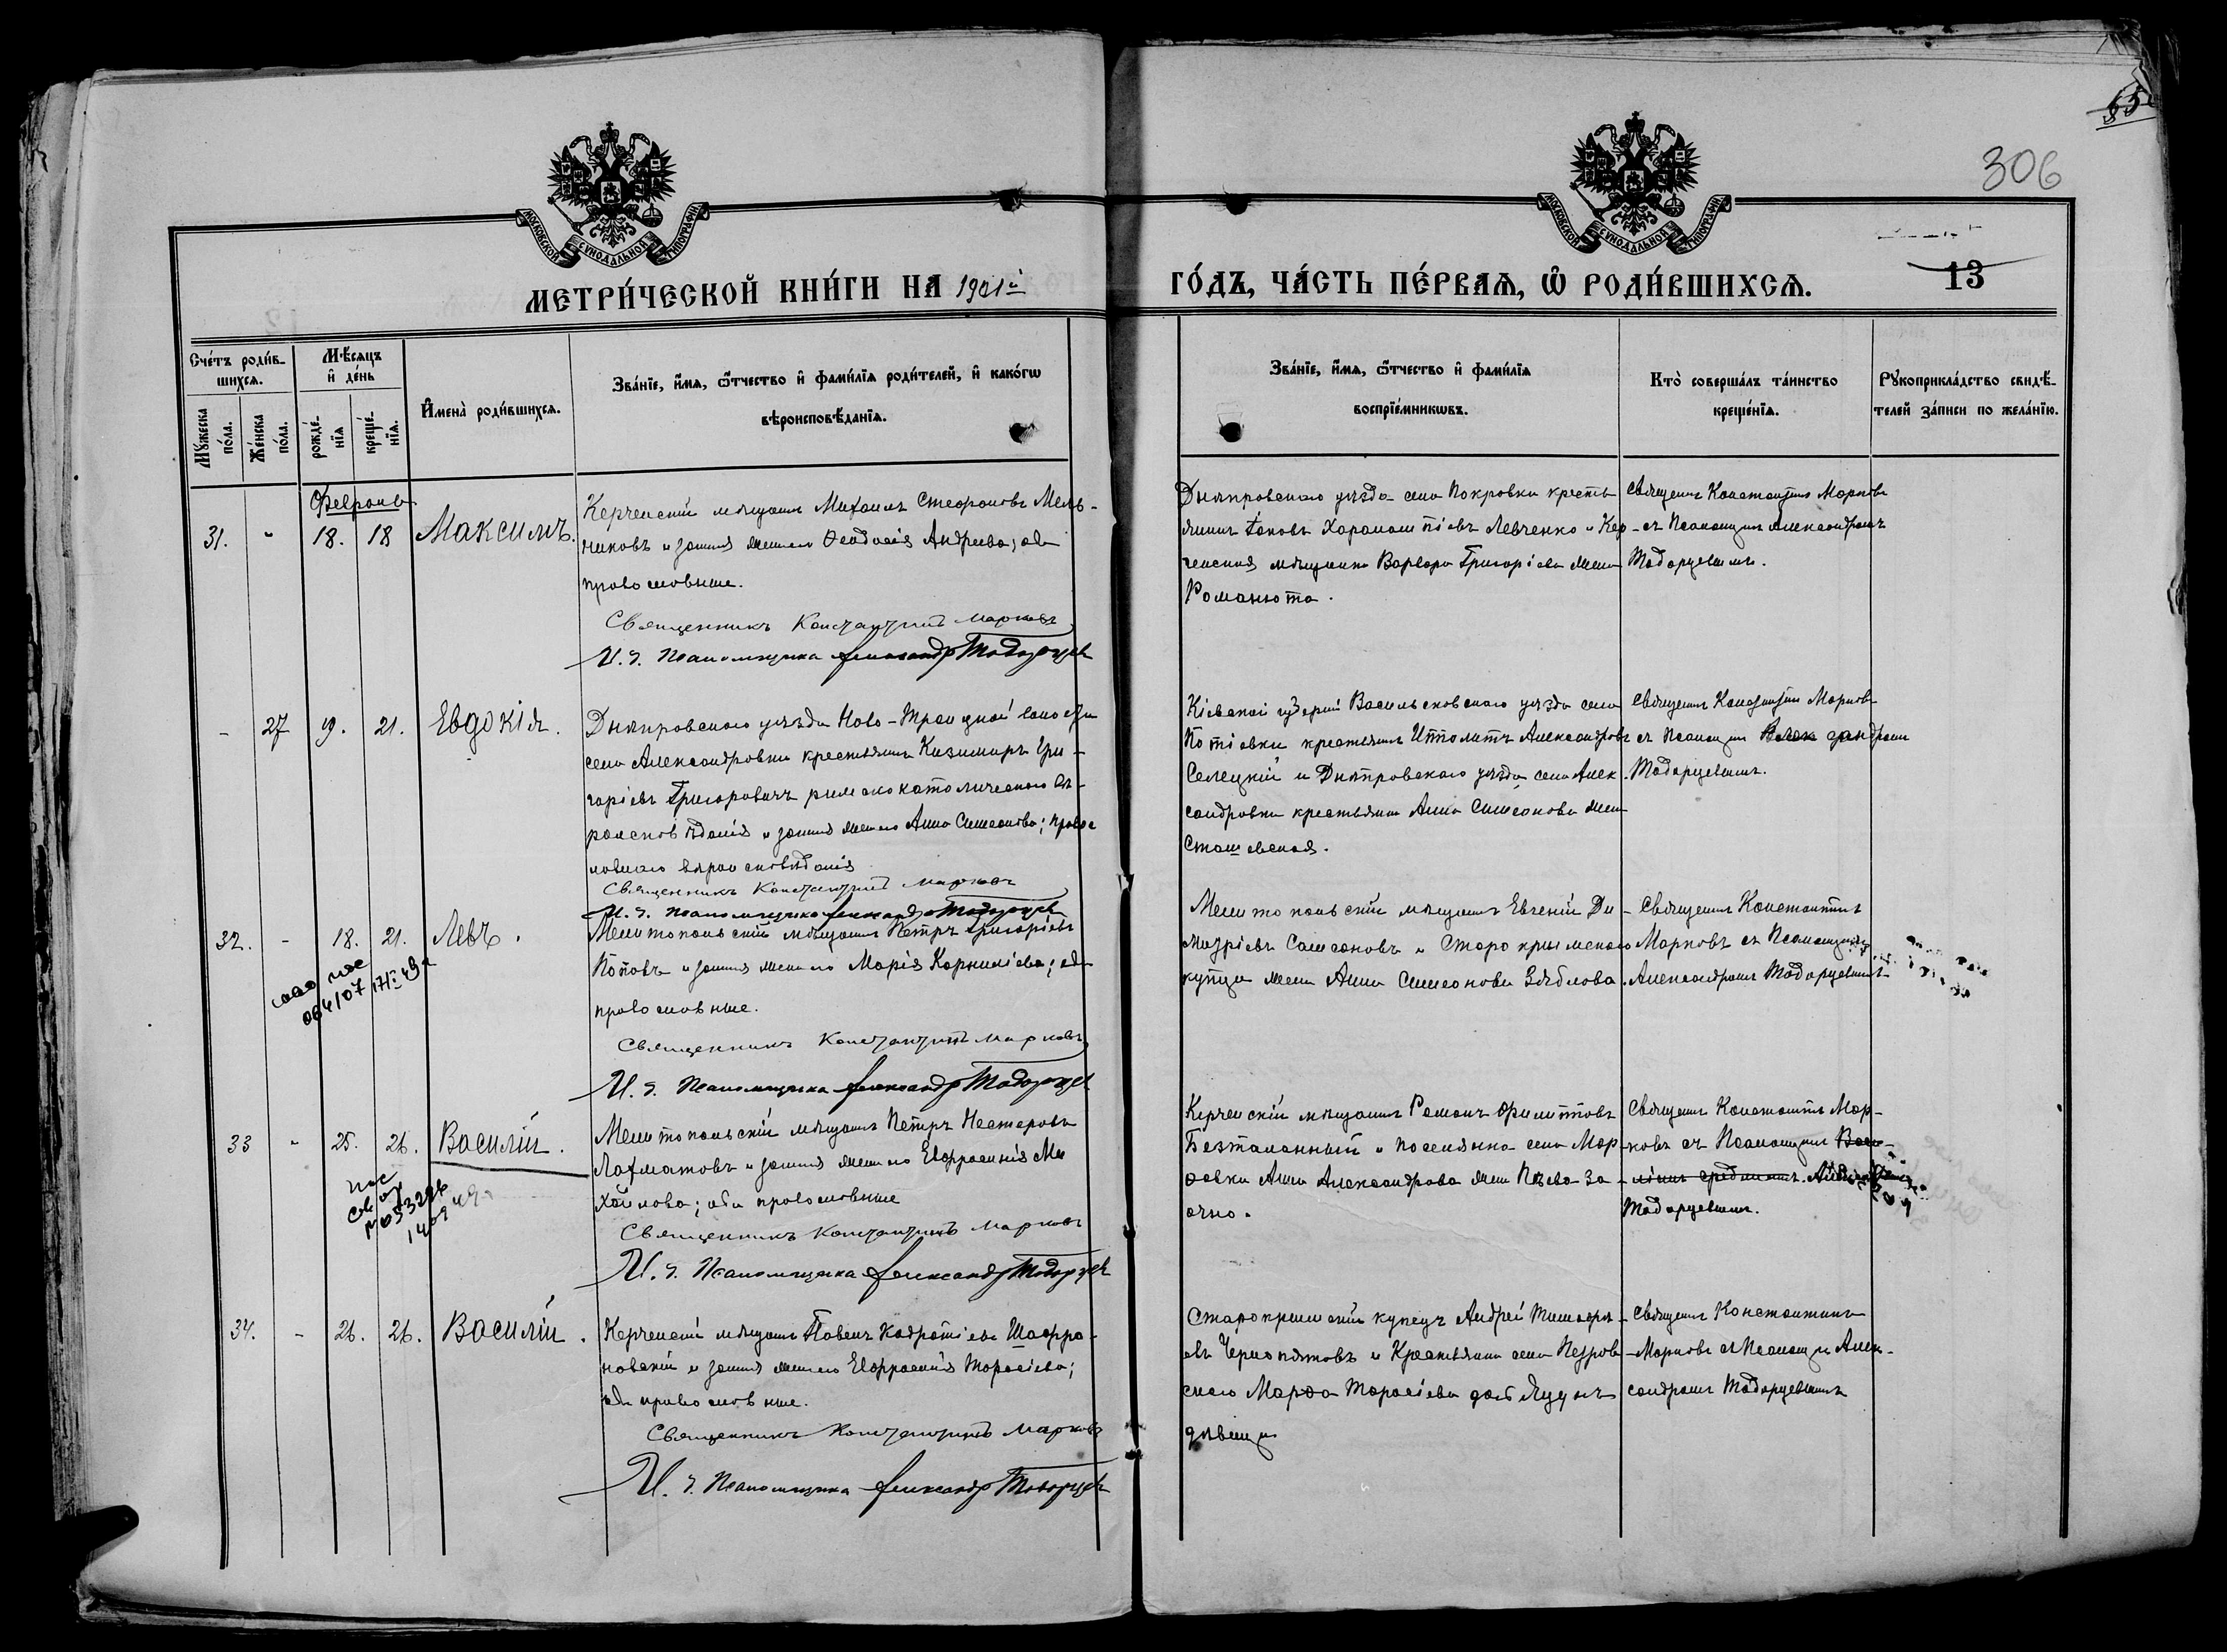 65
306
МОСКОВСКОЙ СѴНОДАЛЬНОЙ ТИПОГРАФІИ
МОСКОВСКОЙ СѴНОДАЛЬНОЙ ТИПОГРАФІИ
МЕТРИ́ЧЕСКОЙ КНИ́ГИ НА 1901й
ГО́ДЪ, ЧА́СТЬ ПЕ́РВАЯ, Ѽ РОДИ́ВШИХСѦ.
13
Сче́тъ роди́в-
шихсѧ.
Мѣ́сѧцъ
и҆ де́нь
Мꙋ́жеска
по́ла.
Же́нска
по́ла.
рожде́-
нїѧ
креще́-
нїѧ.
И҆мена̀ роди́вшихсѧ.
Зва́нїе, и҆́мѧ, ѻ҆́тчество и҆ фами́лїѧ роди́телей, и҆ како́гѡ
вѣроисповѣ́данїѧ.
Зва́нїе, и҆́мѧ, ѻ҆́тчество и҆ фами́лїѧ
воспрїе́мникѡвъ.
Кто̀ соверша́лъ та́инство
креще́нїѧ.
Рꙋкоприкла́дство свидѣ́-
телей за́писи по жела́нїю.
Февраль
31. " 18. 18 Максимъ.
Керченскій мѣщанинъ Михаилъ Стефановъ Мель-
никовъ и законная жена его Ѳеодосія Андреева; оба
православные.
Священникъ Константинъ Марковъ
И. д. Псаломщика Александр Тодорцев
Днѣпровскаго уѣзда села Покровки кресть
янинъ Іаковъ Харалампіевъ Левченко и Кер-
ченская мѣщанка Варвара Григоріева жена
Романюта.
Священникъ Константинъ Марковъ
съ Псаломщик. Александромъ
Тодорцевымъ.
- 27 19. 21. Евдокія.
Днѣпровскаго уѣзда Ново-Троицкой волости
села Александровки крестьянинъ Казимиръ Гри-
горіевъ Григоровичъ римско католическаго вѣ-
роисповѣданія и законная жена его Анна Симеонова; правос
лавнаго вѣроисповѣданія
Священникъ Константинъ Марковъ
И. д. Псаломщика Александр Тодорцев
Кіевской губерніи Васильковскаго уѣзда села
Потіевки крестьянинъ Ипполитъ Александровъ
Селецкій и Днѣпровскаго уѣзда села Алек-
сандровки крестьянка Анна Симеонова жена
Сташевская.
Священникъ Константинъ Марковъ
съ Псаломщик. Александромъ
Тодорцевымъ.
32. - 18. 21. Левъ.
064107
Мелитопольскій мѣщанинъ Петръ Григорьевъ
Поповъ и законная жена его Марія Корнилієва; оба
православные.
Священникъ Константинъ Марковъ
И. д. Псаломщика Александр Тодорцев
Мелитопольскій мѣщанинъ Евгеній Ди-
митріевъ Самсоновъ и Старокрымскаго
купца жена Анна Симеонова Зяблова.
Священникъ Константинъ
Марковъ съ Псаломщикомъ
Александромъ Тодорцевымъ
33 " 25. 26. Василій.
Мелитопольскій мѣщанинъ Петръ Нестеровъ
Лахматовъ и законная жена его Евфросинія Ми
хайлова; оба православные
Священникъ Константинъ Марковъ
И. д. Псаломщика Александр Тодорцев
Керченскій мѣщанинъ Романъ Филипповъ
Безталанный и поселянка села Мар-
фовки Анна Александрова жена за-
очно.
Священникъ Константинъ Мар-
ковъ съ Псаломщик.
Тодорцевымъ.
34. - 26. 26. Василій.
Керченскій мѣщанинъ Павелъ Кодратіевъ Шафра-
новскій и законная жена его Евфросинія Тарасієва;
оба православные.
Священникъ Константинъ Марковъ
И. д. Псаломщика Александр Тодорцев
Старокрымскій купецъ Андрей Тимофе-
евъ Чернопятовъ и Крестьянка села Петров-
скаго Марфа Тарасіева
дѣвица
Священникъ Константинъ
Марковъ съ Псаломщик. Алек-
сандромъ Тодорцевымъ